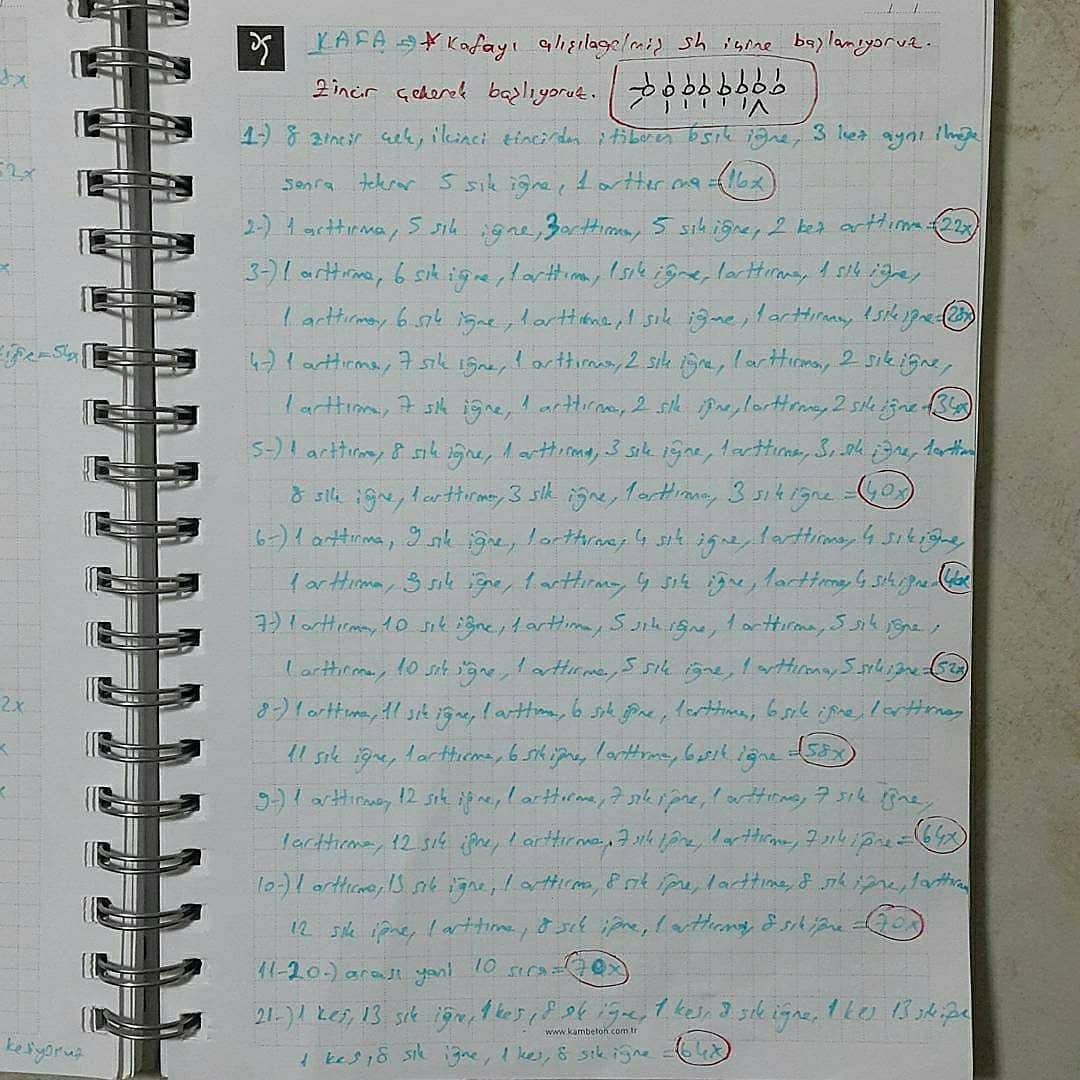 KAFA → * Kafayı alışılagelmiş sh içine başlamıyoruz.
Zincir çekerek başlıyoruz.
1-) 8 zincir çek, ikinci zincirden itibaren 6 sık iğne, 3 kez aynı ilmeğe
sonra tekrar 5 sık iğne, 1 arttırma = 16x
2-) 1 arttırma, 5 sık iğne, 3 arttırma, 5 sık iğne, 2 kez arttırma = 22x
3-) 1 arttırma, 6 sık iğne, 1 arttırma, 1 sık iğne, 1 arttırma, 1 sık iğne,
1 arttırma, 6 sık iğne, 1 arttırma, 1 sık iğne, 1 arttırma, 1 sık iğne = 28x
4-) 1 arttırma, 7 sık iğne, 1 arttırma, 2 sık iğne, 1 arttırma, 2 sık iğne,
1 arttırma, 7 sık iğne, 1 arttırma, 2 sık iğne, 1 arttırma, 2 sık iğne = 34x
5-) 1 arttırma, 8 sık iğne, 1 arttırma, 3 sık iğne, 1 arttırma, 3 sık iğne, 1 arttırma
8 sık iğne, 1 arttırma, 3 sık iğne, 1 arttırma, 3 sık iğne = 40x
6-) 1 arttırma, 9 sık iğne, 1 arttırma, 4 sık iğne, 1 arttırma, 4 sık iğne,
1 arttırma, 9 sık iğne, 1 arttırma, 4 sık iğne, 1 arttırma, 4 sık iğne = 46x
7-) 1 arttırma, 10 sık iğne, 1 arttırma, 5 sık iğne, 1 arttırma, 5 sık iğne,
1 arttırma, 10 sık iğne, 1 arttırma, 5 sık iğne, 1 arttırma, 5 sık iğne = 52x
8-) 1 arttırma, 11 sık iğne, 1 arttırma, 6 sık iğne, 1 arttırma, 6 sık iğne, 1 arttırma,
11 sık iğne, 1 arttırma, 6 sık iğne, 1 arttırma, 6 sık iğne = 58x
9-) 1 arttırma, 12 sık iğne, 1 arttırma, 7 sık iğne, 1 arttırma, 7 sık iğne,
1 arttırma, 12 sık iğne, 1 arttırma, 7 sık iğne, 1 arttırma, 7 sık iğne = 64x
10-) 1 arttırma, 13 sık iğne, 1 arttırma, 8 sık iğne, 1 arttırma, 8 sık iğne, 1 arttırma
12 sık iğne, 1 arttırma, 8 sık iğne, 1 arttırma, 8 sık iğne = 70x
11-20-) arası yani 10 sıra = 70x
21-) 1 kes, 13 sık iğne, 1 kes, 8 sık iğne, 1 kes, 8 sık iğne, 1 kes 13 sık iğne
www.kambeton.com.tr
1 kes, 8 sık iğne, 1 kes, 8 sık iğne = 64x
8x
52x
x
iğne = 54x
2x
x
x
kesiyoruz